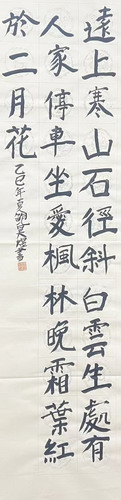 遠上寒山石徑斜白雲生處有
人家停車坐愛楓林晚霜葉紅
於二月花
乙巳年